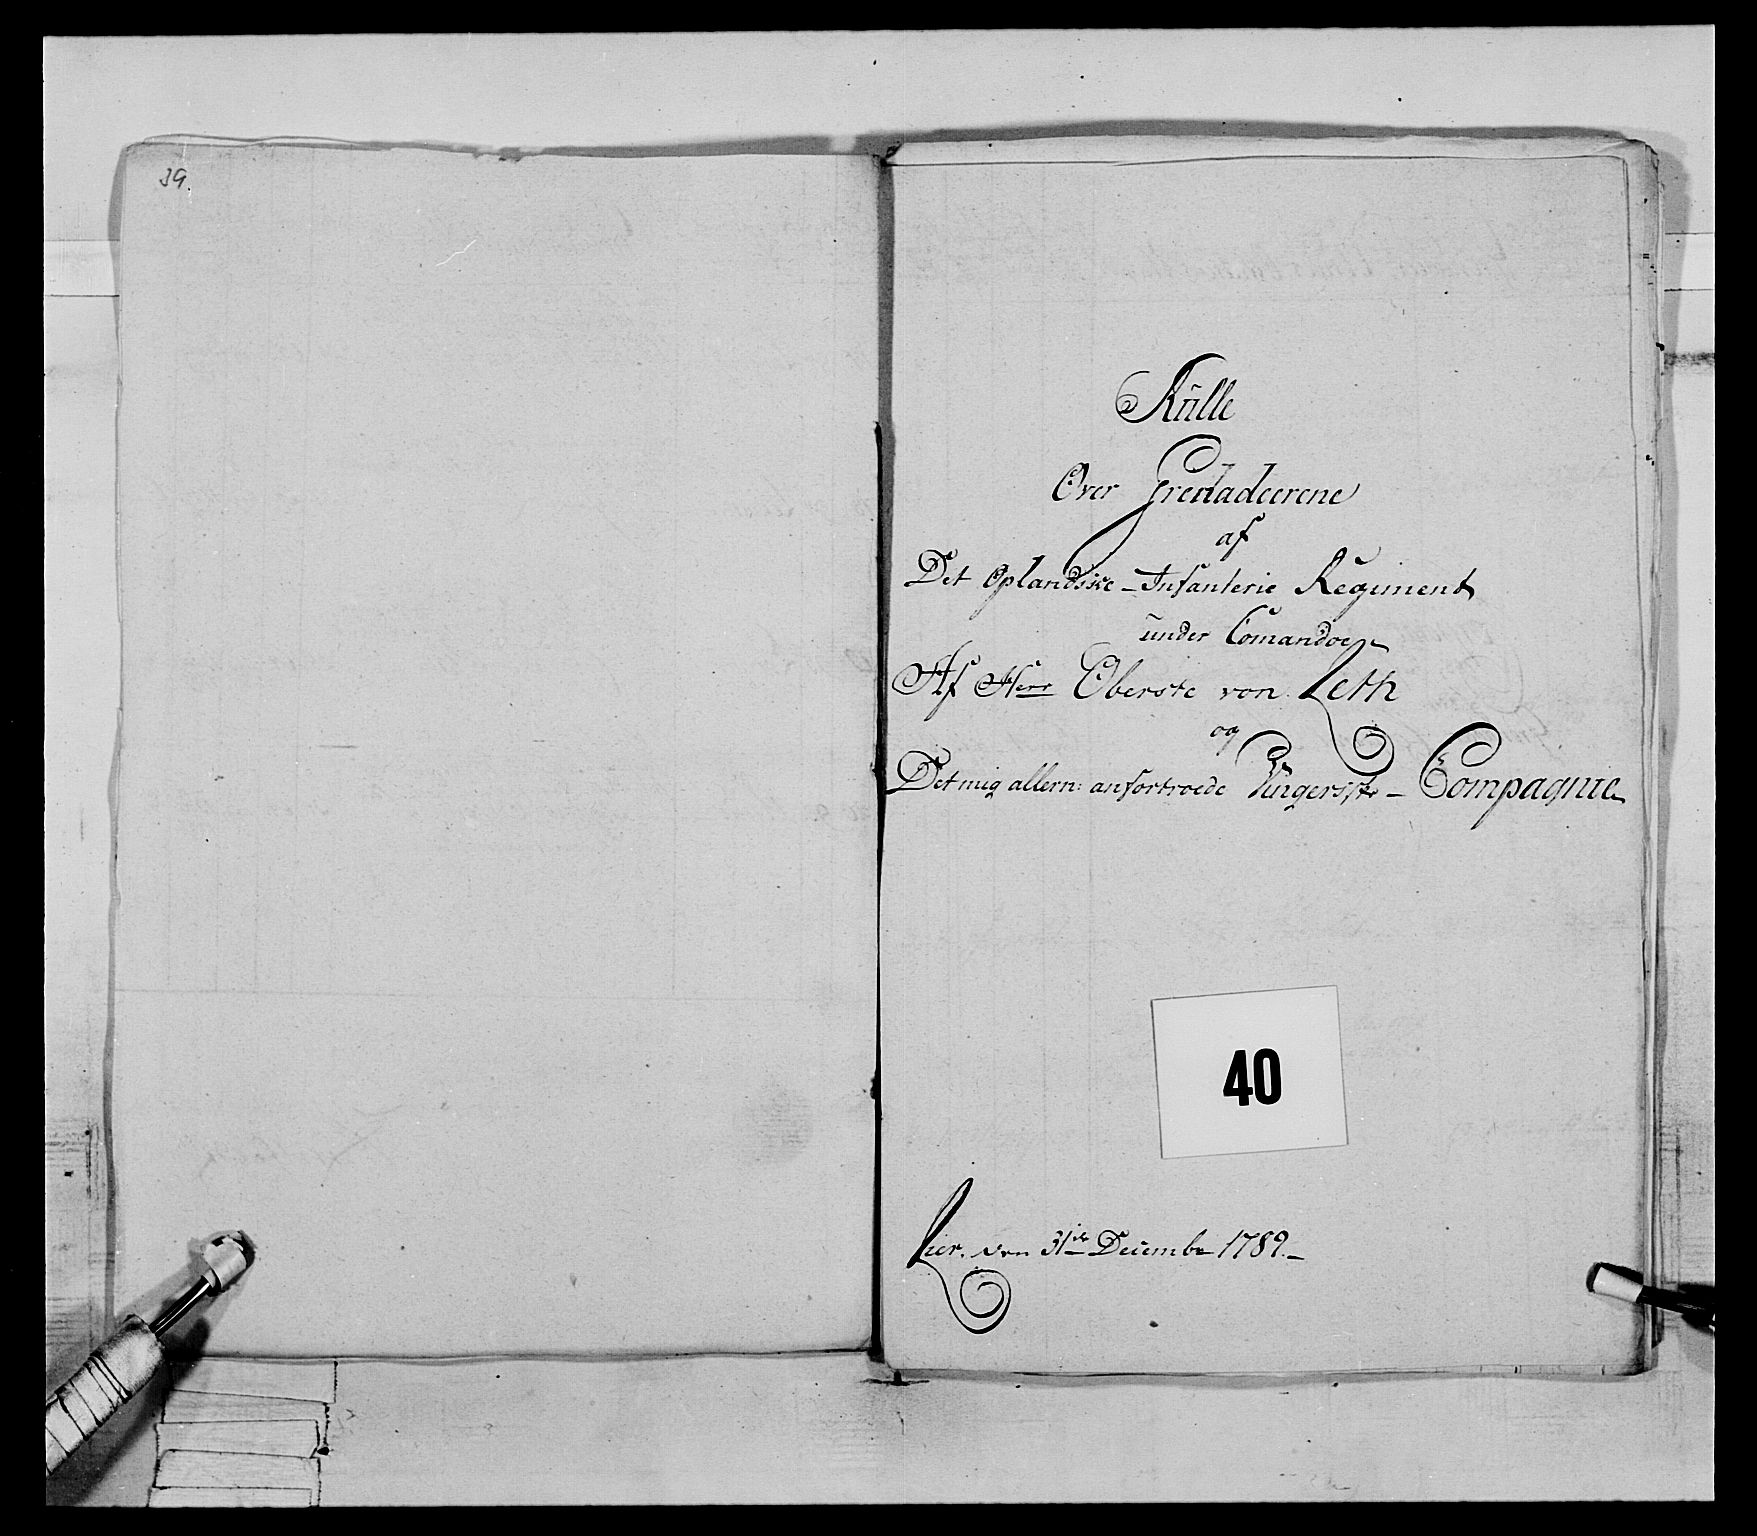 39.
Rülle
Over Grenadeerene
af
Det Oplandske - Infanterie Regiment
ünder Comandoe
Af Herr Oberste von Leth
og
Det mig allern: anfortroede Vingerske - Compagnie
40
Lier. den 31te Decembr 1789.